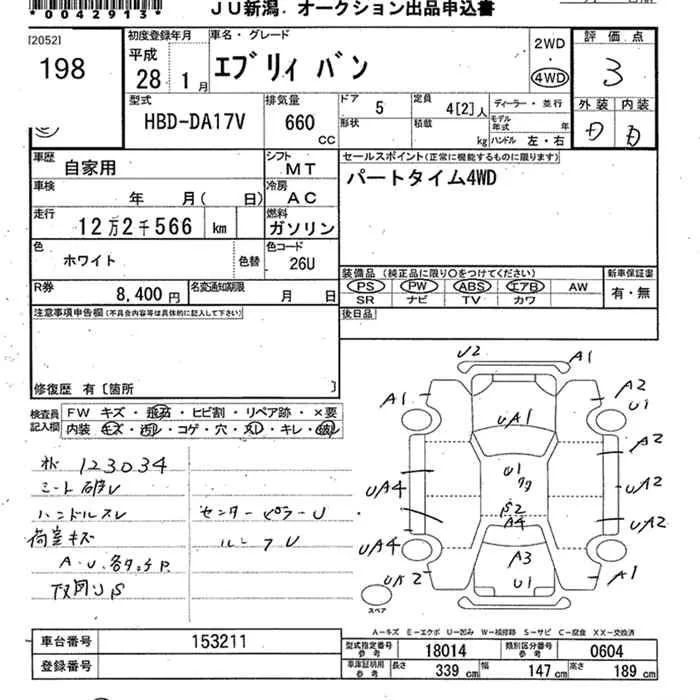 *0042913*
JU新潟. オークション出品申込書
[2052]
198
初度登録年月
平成
28 1月
車名・グレード
エブリィ バン
2WD
・
4WD
評価点
3
型式
HBD-DA17V
排気量
660
CC
ドア 5
形状
定員 4[2]人
積載 kg
ディーラー・並行
モデル年式 年
ハンドル 左・右
外装 内装
車歴
自家用
シフト
MT
車検
年 月( 日)
冷房
AC
走行
12万2千566 km
燃料
ガソリン
色
ホワイト
色替
色コード
26U
R券
8,400円
名変通知期限
月 日
セールスポイント(正常に機能するものに限ります)
パートタイム4WD
装備品(純正品に限り○をつけてください)
PS PW ABS エアB AW
SR ナビ TV カワ
新車保証書
有・無
後日品
注意事項申告欄(不具合内容等は具体的に記入して下さい)
修復歴 有[箇所 ]
検査員
記入欄
FW キズ・飛石・ヒビ割・リペア跡・×要
内装 キズ・汚レ・コゲ・穴・スレ・キレ・破レ
123034
シート破レ
ハンドルスレ
荷室キズ
A・U・各タッチP.
下回りS
センターピラーU
ルーフU
U2
A1
A1
A2
U1
UA1
A2
U1
UA4
UA2
S2
A4
UA2
UA4
A3
UA2
U1
A1
スペア
A-キズ E-エクボ U-凹み W-補修跡 S-サビ C-腐食 XX-交換済
車台番号 153211
登録番号
型式指定番号
参考
18014
類別区分番号
参考
0604
車庫証明用
参考
長さ 339 cm
幅 147 cm
高さ 189 cm